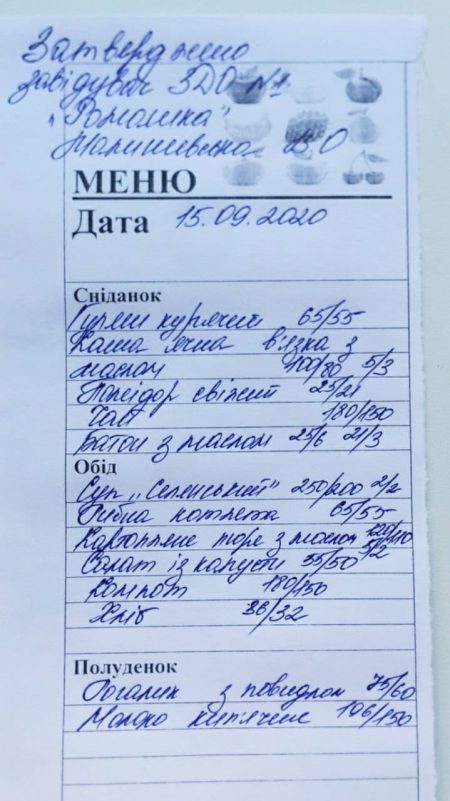 Затверджено
завідувач ЗДО №1
„Ромашка"
В.О
МЕНЮ
Дата 15.09.2020
Сніданок
Гуляш курячий 65/55
Каша ячна в'язка з
маслом 100/80 5/3
Помідор свіжий 25/21
Чай 180/150
Батон з маслом 25/6 21/3
Обід
Суп „Селянський" 250/200 2/2
Рибна котлета 65/55
Картопляне пюре з маслом 120/110
Салат із капусти 55/50 5/2
Компот 180/150
Хліб 36/32
Полуденок
Рогалик з повидлом 75/60
Молоко кип'ячене 106/150